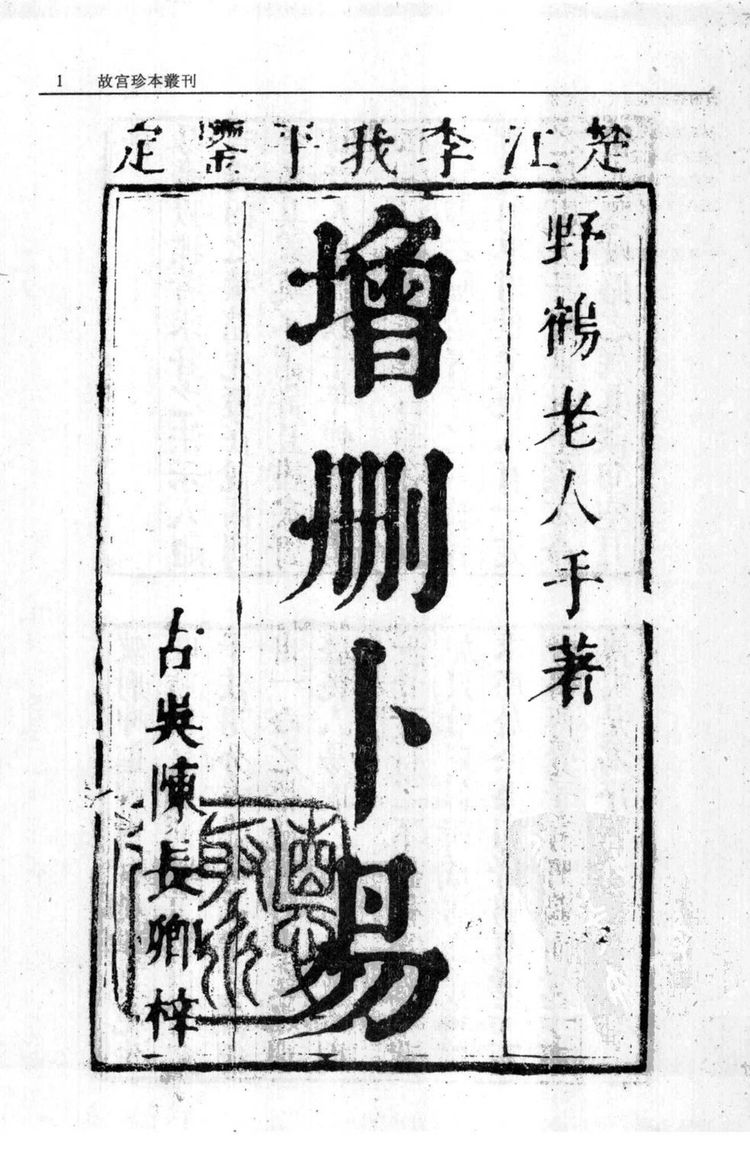 1 故宫珍本叢刊
楚江李我平鑒定
野鶴老人手著
增刪卜易
古吳陳長卿梓